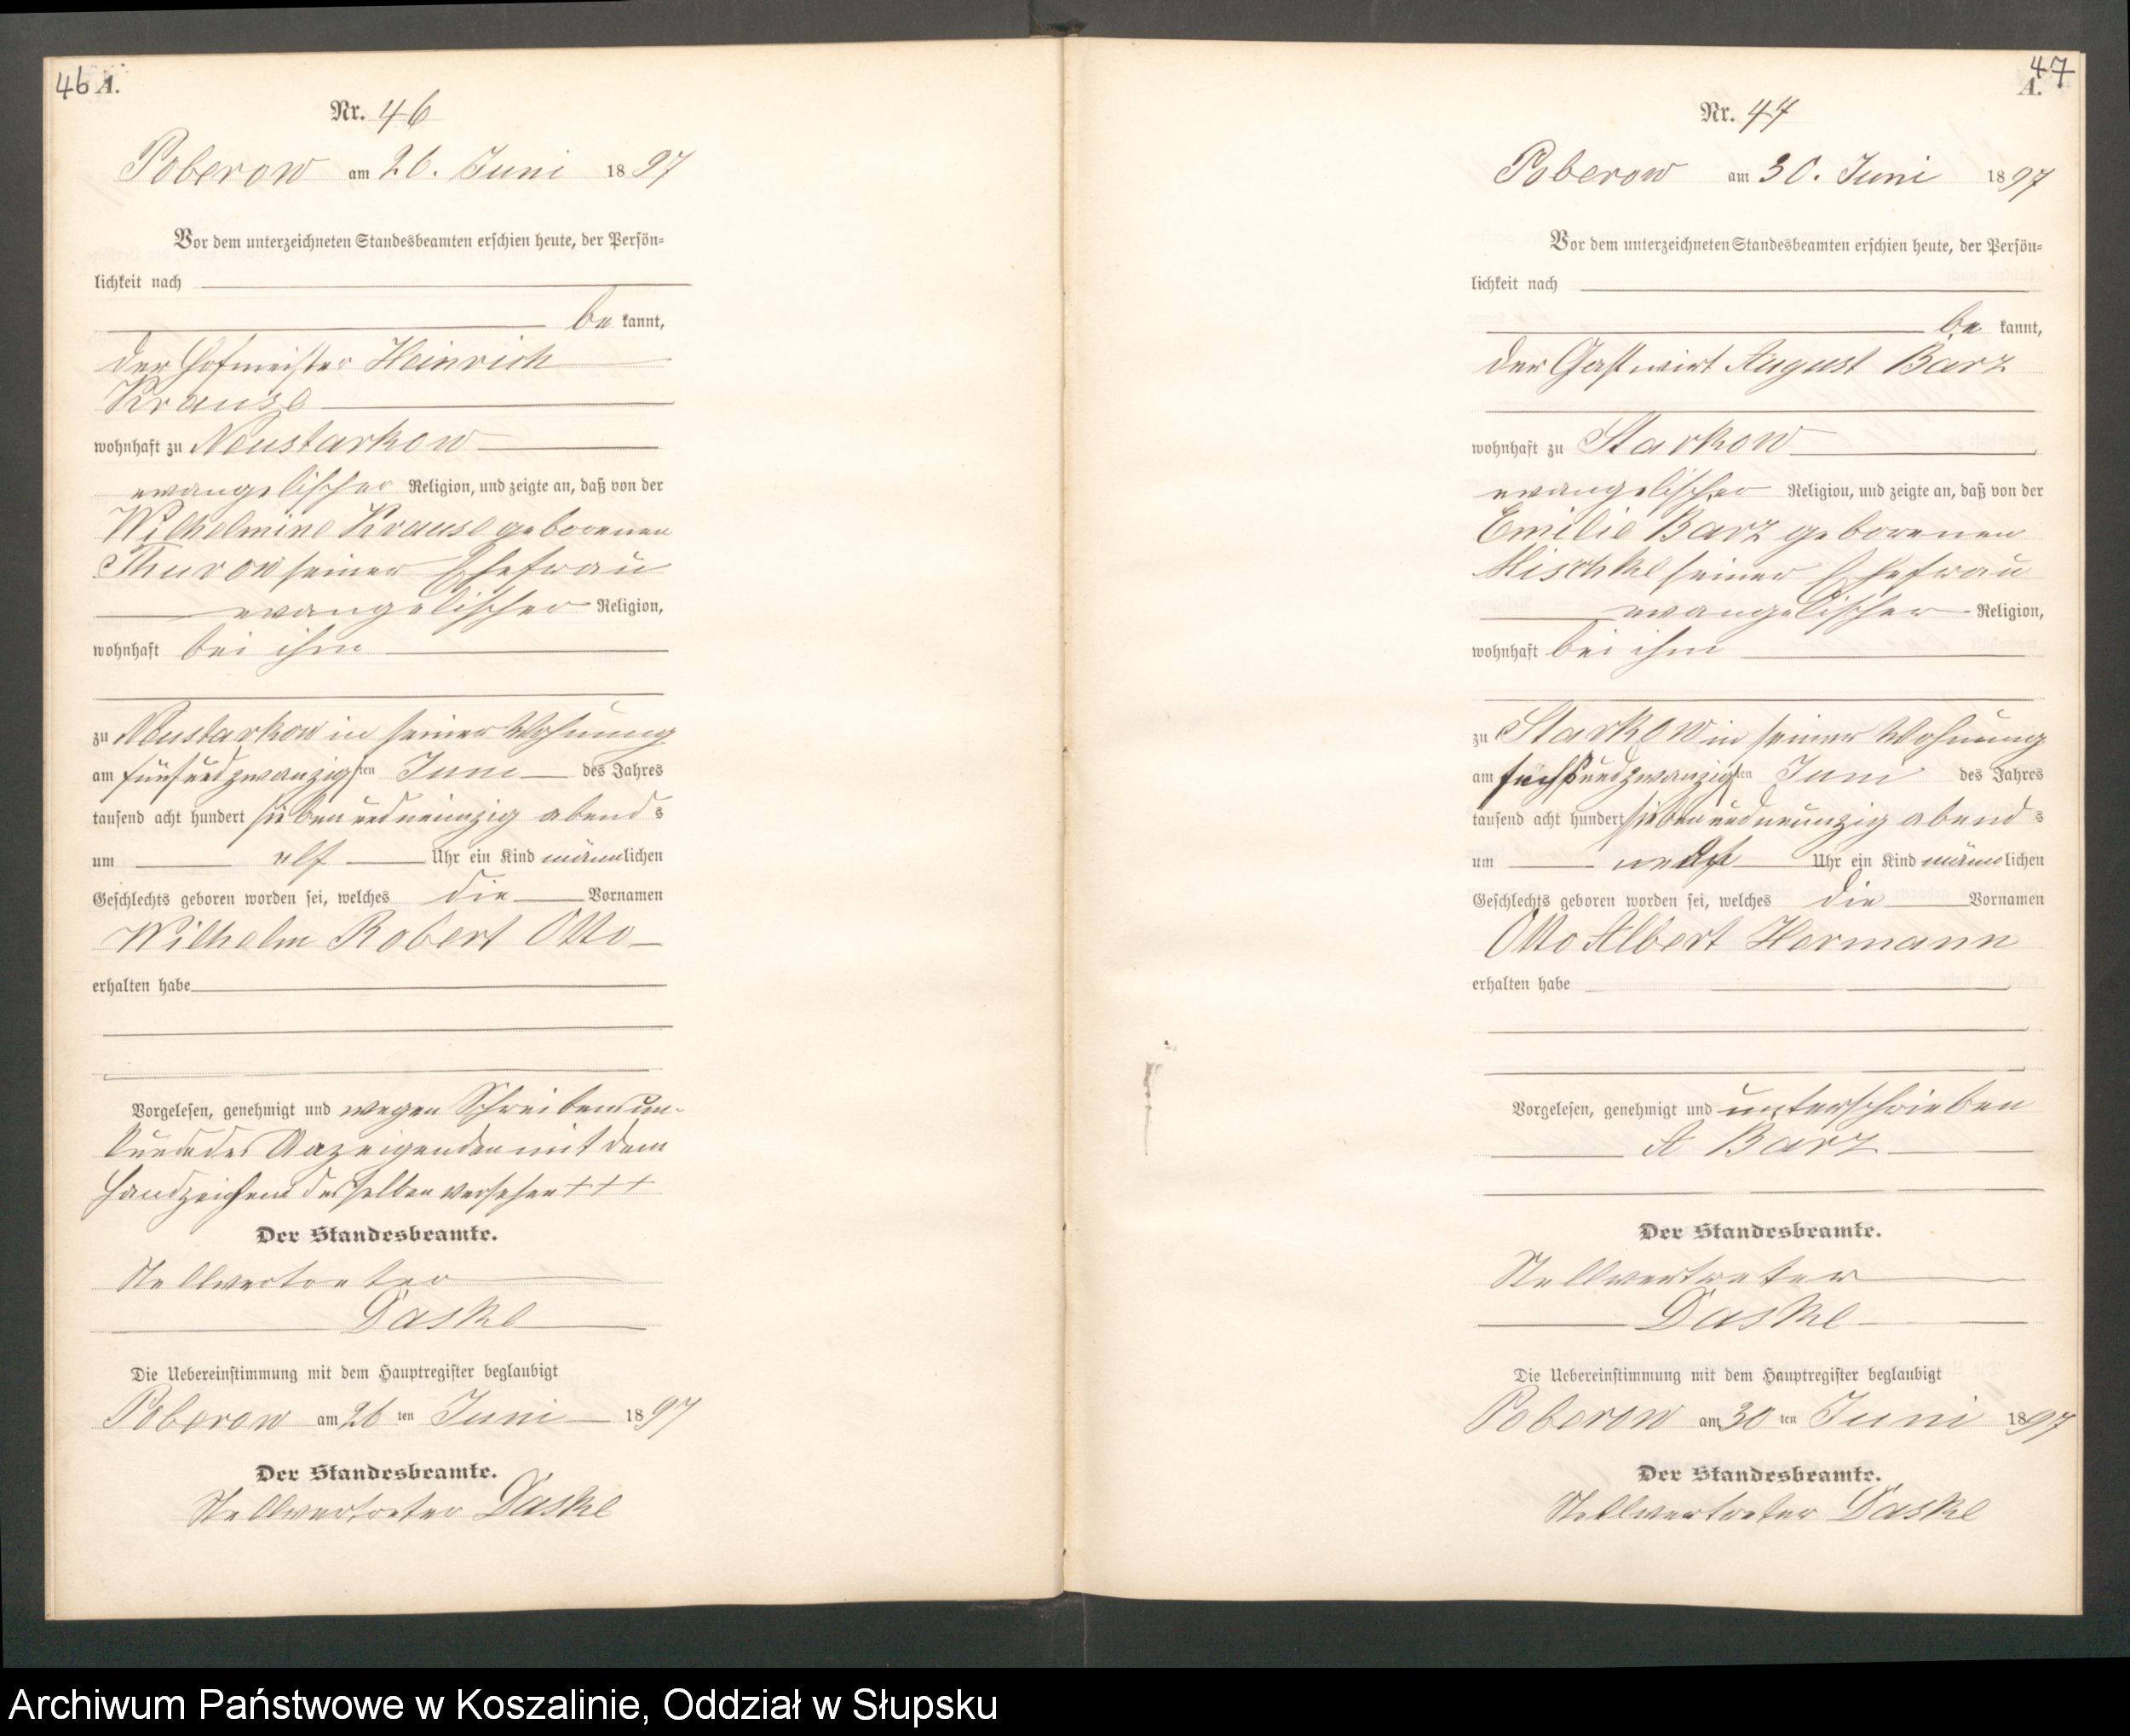 46 A.
Nr. 46
Poberow am 26. Juni 1897
Vor dem unterzeichneten Standesbeamten erschien heute, der Persön-
lichkeit nach
be kannt,
der Hofmeister Heinrich
Krause
wohnhaft zu Neustarkow
evangelischer Religion, und zeigte an, daß von der
Wilhelmine Krause geborenen
Thurow seiner Ehefrau
evangelischer Religion,
wohnhaft bei ihm
zu Neustarkow in seiner Wohnung
am fünfundzwanzigsten Juni des Jahres
tausend acht hundert siebenundneunzig abends
um elf Uhr ein Kind männlichen
Geschlechts geboren worden sei, welches die Vornamen
Wilhelm Robert Otto
erhalten habe
Vorgelesen, genehmigt und wegen Schreibensun-
kunde des Anzeigenden mit dem
Handzeichen desselben versehen +++
Der Standesbeamte.
Stellvertreter
Daske
Die Uebereinstimmung mit dem Hauptregister beglaubigt
Poberow am 26 ten Juni 1897
Der Standesbeamte.
Stellvertreter Daske
47
A.
Nr. 47
Poberow am 30. Juni 1897
Vor dem unterzeichneten Standesbeamten erschien heute, der Persön-
lichkeit nach
be kannt,
der Gastwirt August Barz
wohnhaft zu Starkow
evangelischer Religion, und zeigte an, daß von der
Emilie Barz geborenen
Mischke seiner Ehefrau
evangelischer Religion,
wohnhaft bei ihm
zu Starkow in seiner Wohnung
am sechsundzwanzigsten Juni des Jahres
tausend acht hundert siebenundneunzig abends
um Uhr ein Kind männlichen
Geschlechts geboren worden sei, welches die Vornamen
Otto Albert Hermann
erhalten habe
Vorgelesen, genehmigt und unterschrieben
A Barz
Der Standesbeamte.
Stellvertreter
Daske
Die Uebereinstimmung mit dem Hauptregister beglaubigt
Poberow am 30 ten Juni 1897
Der Standesbeamte.
Stellvertreter Daske
Archiwum Państwowe w Koszalinie, Oddział w Słupsku